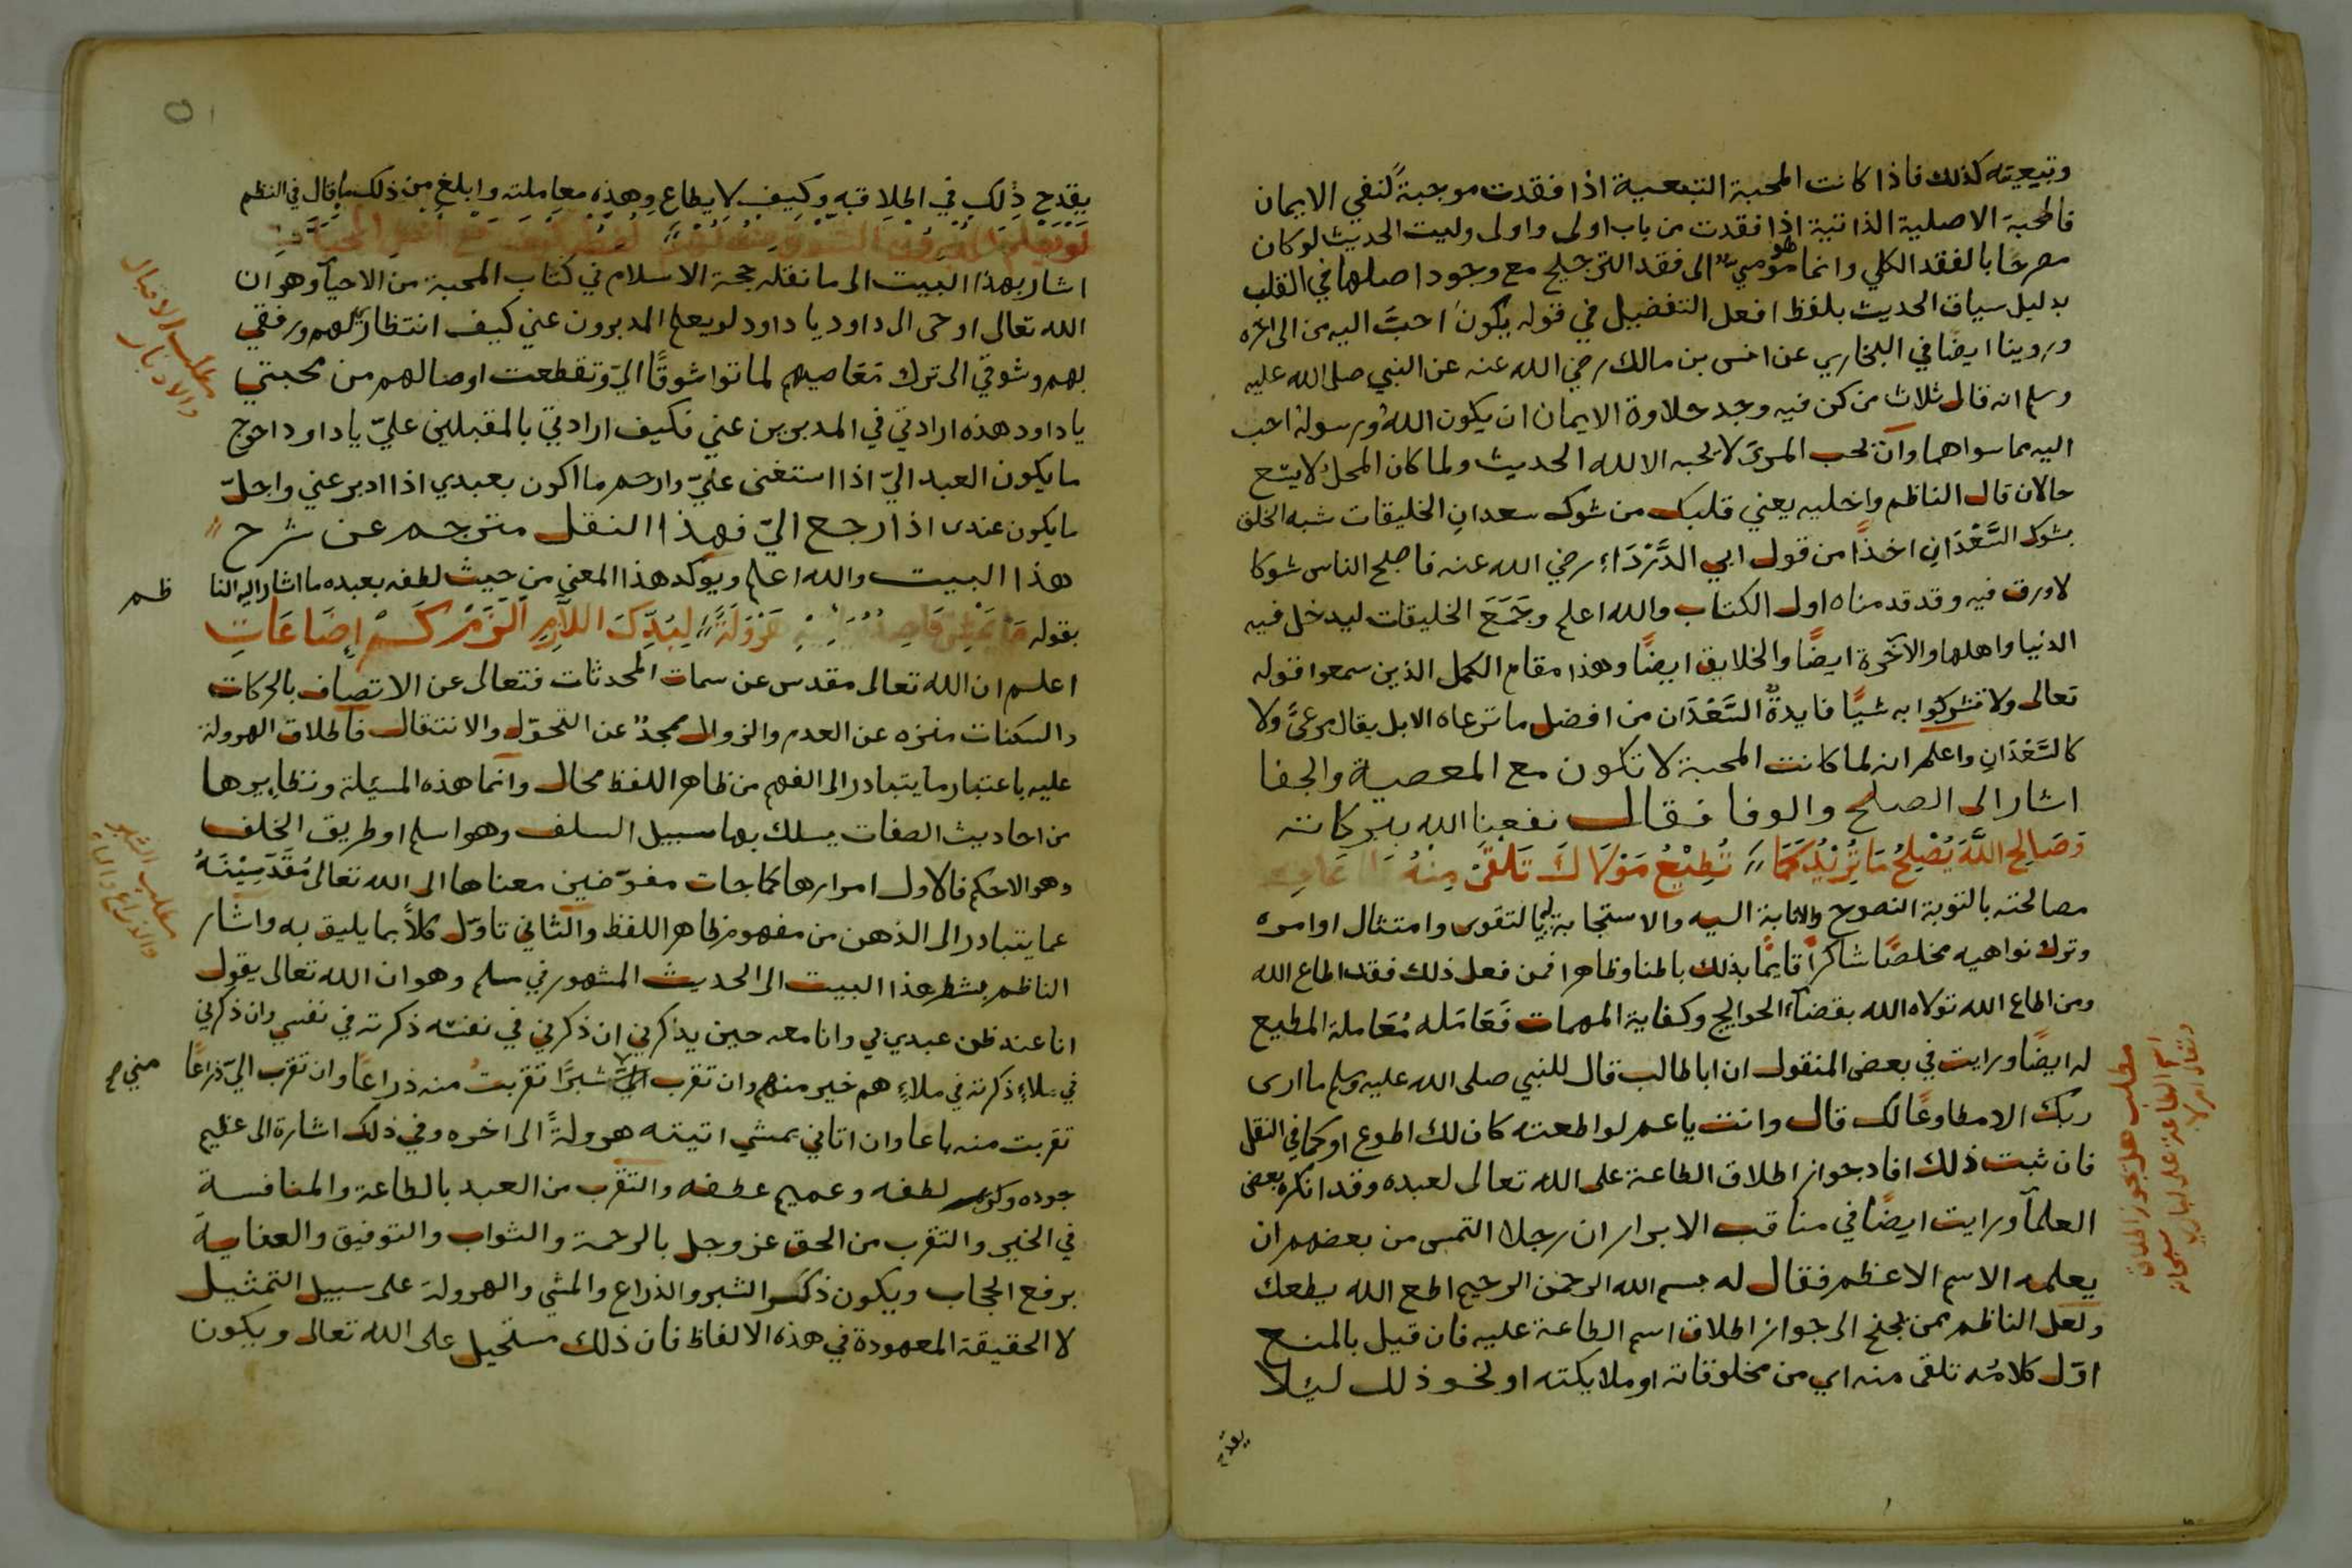 وتبعيته كذلك فاذا كانت المحبة التبعية اذا فقدت موجبةً لنفي الايمان
فالمحبة الاصلية الذاتية اذا فقدت من باب اولى واولى وليت الحديث لو كان
مصرحًا بالفقد الكلي وانما هو مومي الى فقد الترجيح مع وجود اصلها في القلب
بدليل سياق الحديث بلفظ افعل التفضيل في قوله يكون احبّ اليه من الى اخره
وروينا ايضًا في البخاري عن انس بن مالك رضي الله عنه عن النبي صلى الله عليه
وسلم انه قال ثلاث من كن فيه وجد حلاوة الايمان ان يكون الله ورسوله احب
اليه مما سواهما وان يحب المرء لا يحبه الا لله الحديث ولما كان المحل لا يتسع
حالان قال الناظم واخليه يعني قلبك من شوك سعدان الخليقات شبه الخلق
بشوك السَّعْدَانِ اخذًا من قول ابي الدَّرْدَاءِ رضي الله عنه فاصبح الناس شوكا
لا ورق فيه وقد قدمناه اول الكتاب والله اعلم وجَمَعَ الخليقات ليدخل فيه
الدنيا واهلها والآخرة ايضًا والخلايق ايضًا وهذا مقام الكمل الذين سمعوا قوله
تعالى ولا تشركوا به شيًا فايدةٌ السَّعْدَان من افضل ما ترعاه الابل يقال مرعًى ولا
كالسَّعْدَانِ واعلم انه لما كانت المحبة لا تكون مع المعصية والجفا
اشار الى الصلح والوفا فقال نفعنا الله ببركاته
وَصَالِحِ اللَّهَ يُصْلِحُ مَا تُرِيْدُ كَمَا تُطِيْعُ مَوْلَاكَ تَلْقَىْ مِنْهُ
مصالحته بالتوبة النصوح والانابة اليه والاستجابة له بالتقوى وامتثال اوامره
وترك نواهيه مخلصًا شاكرًا قايمًا بذلك باطنا وظاهرا فمن فعل ذلك فقد اطاع الله
ومن اطاع الله تولاه الله بقضآء الحوايج وكفاية المهمات فَعَامَله مُعَاملة المطيع
له ايضًا ورايت في بعض المنقول ان اباطالب قال للنبي صلى الله عليه وسلم ما ارى
ربك الا مطاوعًا لك قال وانت ياعم لو اطعته كان لك اطوع او كما في النقل
فان ثبت ذلك افاد جواز اطلاق الطاعة على الله تعالى لعبده وقد انكره بعض
العلمآ ورايت ايضًا في مناقب الابرار ان رجلا التمس من بعضهم ان
يعلمه الاسم الاعظم فقال له بسم الله الرحمن الرحيم اطع الله يطعك
ولعل الناظم ممن يجنح الى جواز اطلاق اسم الطاعة عليه فان قيل بالمنع
اوّل كلامُه تلقى منه اي من مخلوقاته او ملايكته او نحو ذلك ليلا
يقدح
مطلب هل يجوز اطلاق
اسم الطاعة على الباري سبحانه
وتعالى ام لا
يقدح ذلك في اطلاقه وكيف لا يطاع وهذه معاملته وابلغ من ذلك ما قال في النظم
لَوْ يَعْلَم
اشار بهذا البيت الى ما نقله حجة الاسلام في كتاب المحبة من الاحيآ وهو ان
الله تعالى اوحى الى داود يا داود لو يعلم المدبرون عني كيف انتظاري لهم ورفقي
بهم وشوقي الى ترك مَعَاصيهم لماتوا شوقًا اليّ وتقطعت اوصالهم من محبتي
يا داود هذه ارادتي في المدبرين عني فكيف ارادتي بالمقبلين عليّ يا داود احوج
ما يكون العبد اليّ اذا استغنى عنيّ وارحم ما اكون بعبدي اذا ادبر عني واجلّ
ما يكون عندى اذا رجع اليّ فهذا النقل مترجم عن شرح
هذا البيت والله اعلم ويوكد هذا المعنى من حيث لطفه بعبده ما اشار اليه النا
ظم
بقوله لِبُدِّكَ اللَّازِمِ الْزَمْ كَمْ إِضَاعَاتِ
اعلم ان الله تعالى مقدس عن سمات المحدثات فتعالى عن الاتصاف بالحركات
والسكنات منزه عن العدم والزوال ممجدٌ عن التحوّل والانتقال فاطلاق الهرولة
عليه باعتبار ما يتبادر الى الفهم من ظاهر اللفظ محال وانما هذه المسئلة ونظايرها
من احاديث الصفات يسلك بها سبيل السلف وهو اسلم او طريق الخلف
وهو الاحكم فالاول امرارها كما جات مفوّضين معناها الى الله تعالى مُقَدِّسِيْنَهُ
عما يتبادر الى الذهن من مفهوم ظاهر اللفظ والثاني تاوّل كلاً بما يليق به واشار
الناظم بشطر هذا البيت الى الحديث المشهور في مسلم وهو ان الله تعالى يقول
انا عند ظن عبدي بي وانا معه حين يذكرني ان ذكرني في نفسه ذكرته في نفسي وان ذكرني
في ملاءٍ ذكرته في ملاءٍ هم خير منهم وان تقرب شبرًا تقربتُ منه ذراعًا وان تقرب اليّ ذراعًا
مني صح
تقربت منه باعا وان اتاني يمشي اتيته هرولةً الى اخره وفي ذلك اشارة الى عظيم
جوده وكريم لطفه وعميم عطفه والتقرب من العبد بالطاعة والمنافسة
في الخير والتقرب من الحق عز وجل بالرحمة والثواب والتوفيق والعناية
برفع الحجاب ويكون ذكر الشبر والذراع والمشي والهرولة على سبيل التمثيل
لا الحقيقة المعهودة في هذه الالفاظ فان ذلك مستحيل على الله تعالى ويكون
مطلب الاقبال
والادبار
مطلب الشبر
والذراع والباع